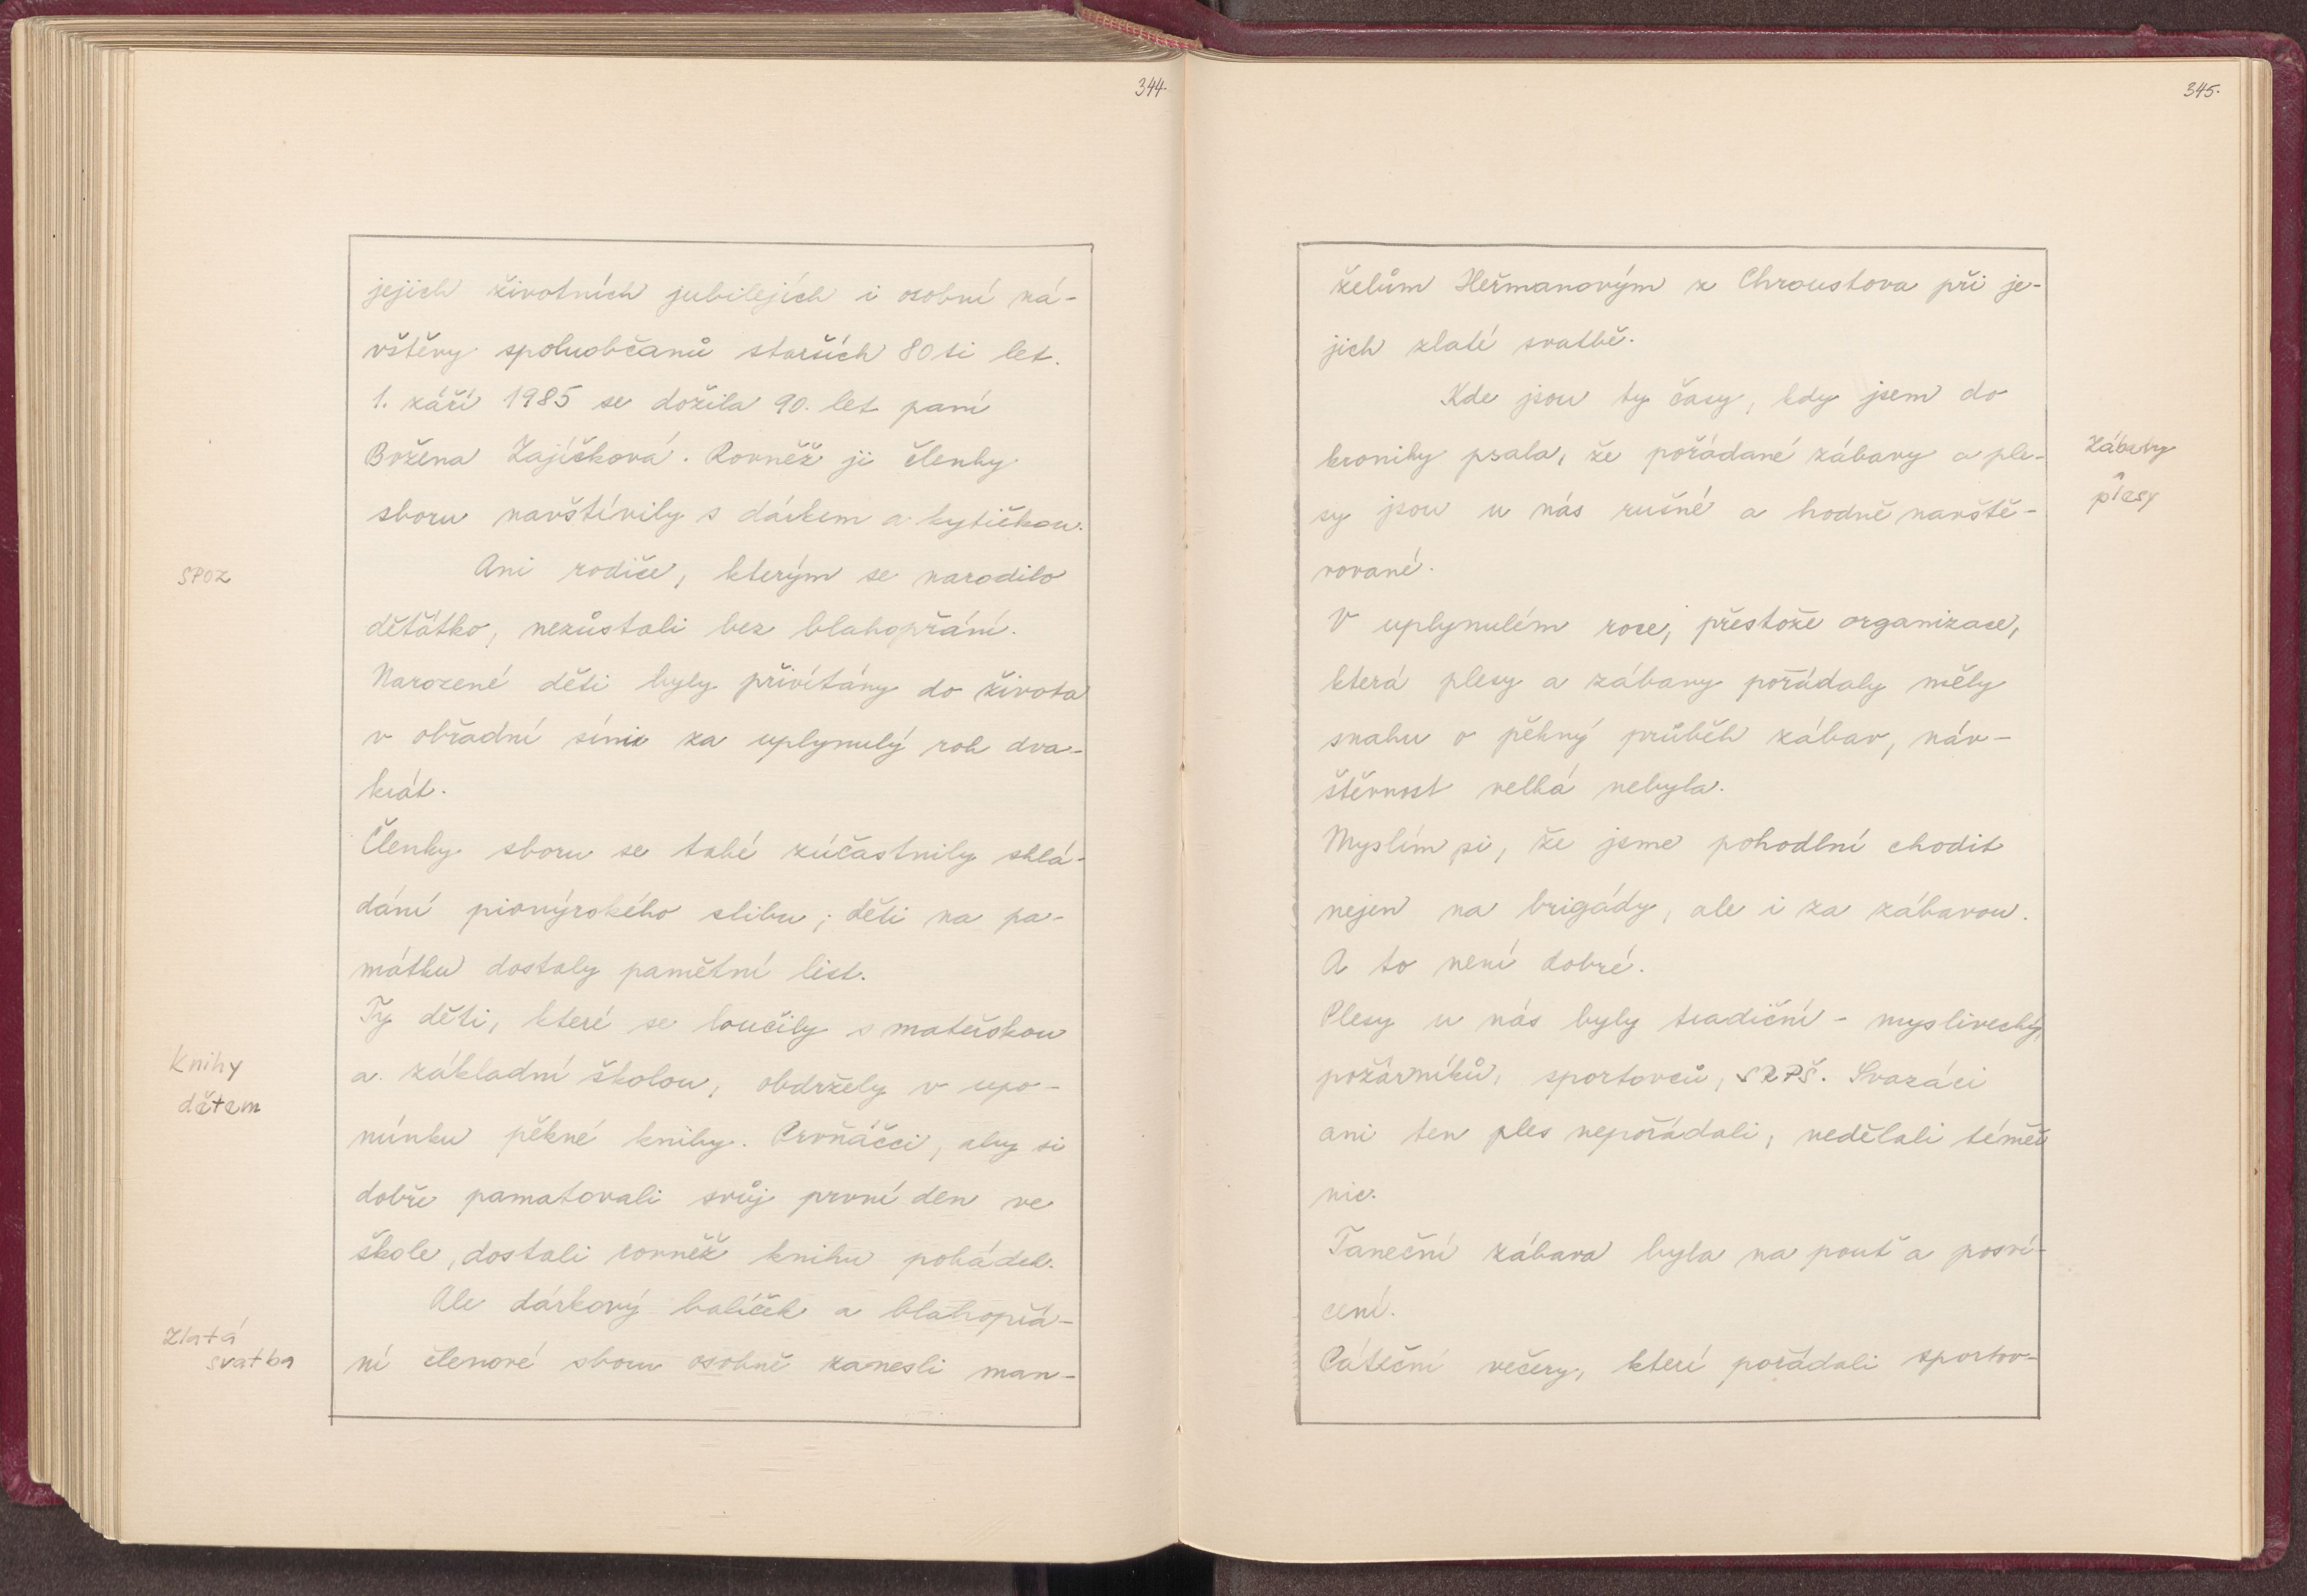 344.
jejich životních jubilejích i osobní ná-
vštěvy spoluobčanů starších 80ti let.
1. září 1985 se dožila 90. let paní
Božena Zajíčková. Rovněž ji členky
sboru navštívily s dárkem a kytičkou.
SPOZ
Ani rodiče, kterým se narodilo
děťátko, nezůstali bez blahopřání.
Narozené děti byly přivítány do života
v obřadní síni za uplynulý rok dva-
krát.
Členky sboru se také zúčastnily sklá-
dání pionýrského slibu; děti na pa-
mátku dostaly pamětní list.
Ty děti, které se loučily s mateřskou
Knihy
dětem
a základní školou, obdržely v upo-
mínku pěkné knihy. Prvňáčci, aby si
dobře pamatovali svůj první den ve
škole, dostali rovněž knihu pohádek.
Ale dárkový balíček a blahopřá-
Zlatá
svatba
ní členové sboru osobně zanesli man-
345.
želům Heřmanovým z Chroustova při je-
jich zlaté svatbě.
Kde jsou ty časy, kdy jsem do
kroniky psala, že pořádané zábavy a ple-
Zábavy
plesy
sy jsou u nás rušné a hodně navště-
vované.
V uplynulém roce, přestože organizace,
která plesy a zábavy pořádaly měly
snahu o pěkný průběh zábav, náv-
štěvnost velká nebyla.
Myslím si, že jsme pohodlní chodit
nejen na brigády, ale i za zábavou.
A to není dobré.
Plesy u nás byly tradiční - myslivecký,
požárníků, sportovců, SRPŠ. Svazáci
ani ten ples nepořádali, nedělali téměř
nic.
Taneční zábava byla na pouť a posví-
cení.
Páteční večery, které pořádali sportov-